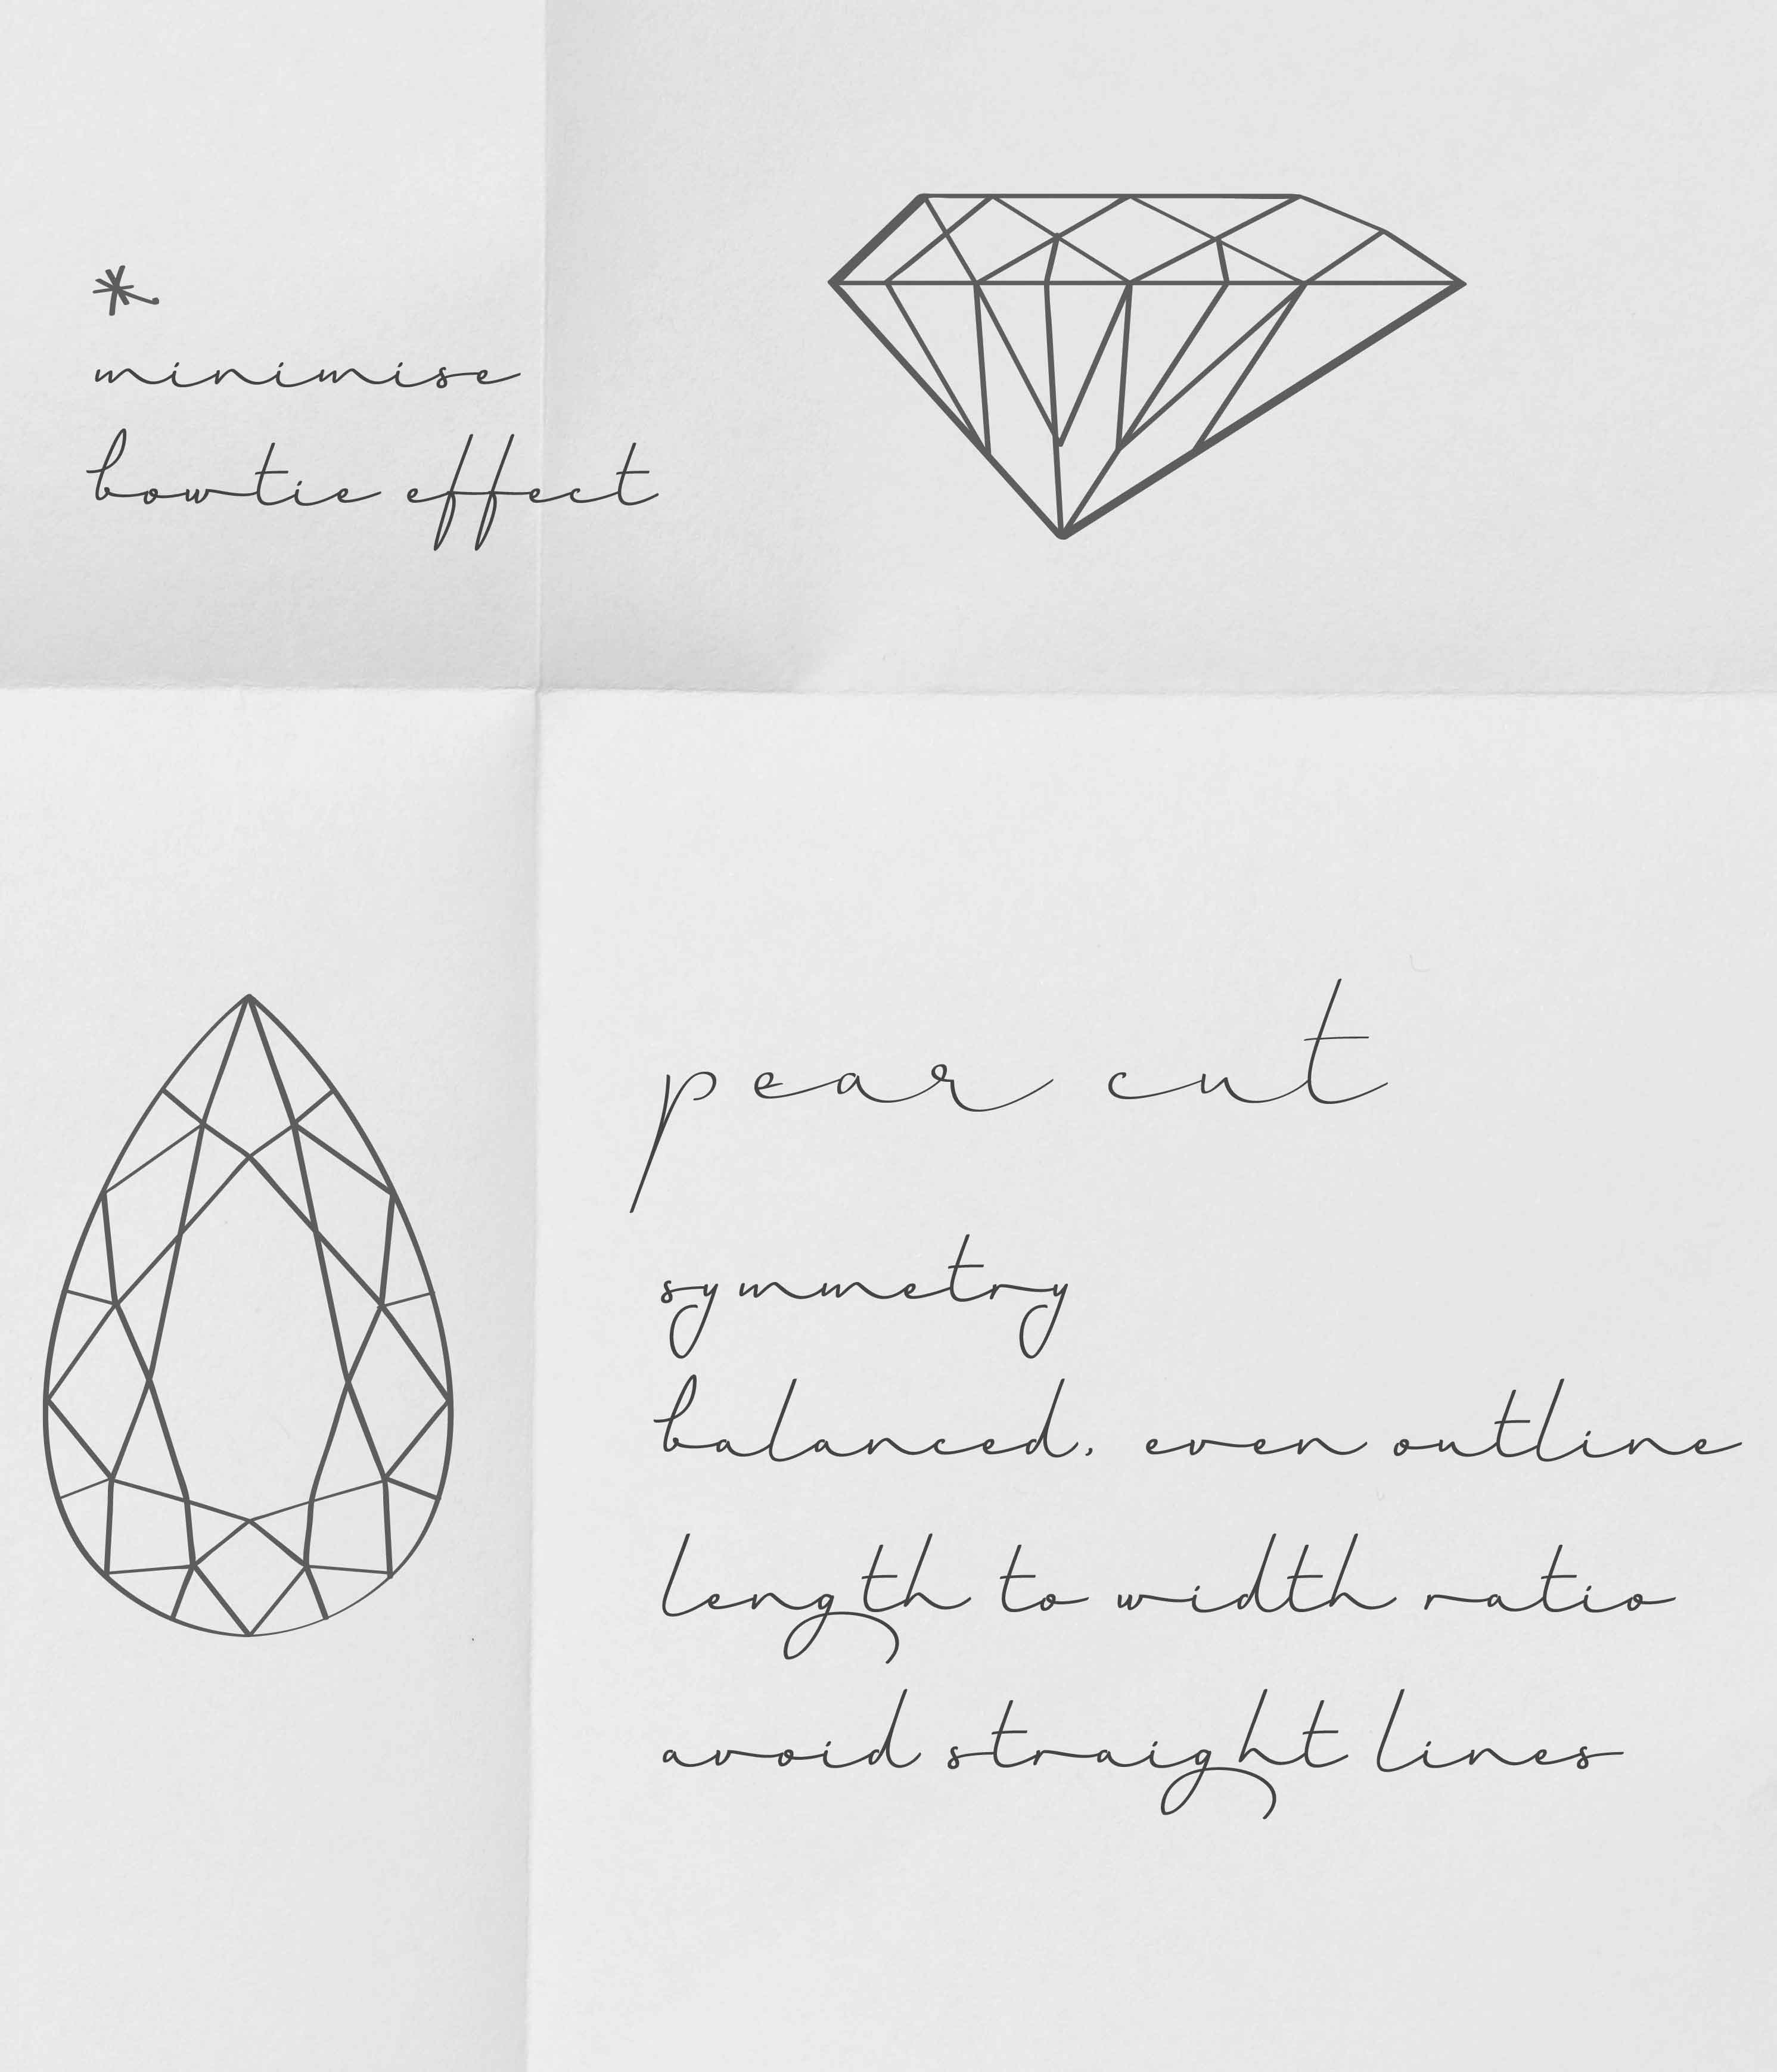 *
minimise
bowtie effect
pear cut
symmetry
balanced, even outline
length to width ratio
avoid straight lines